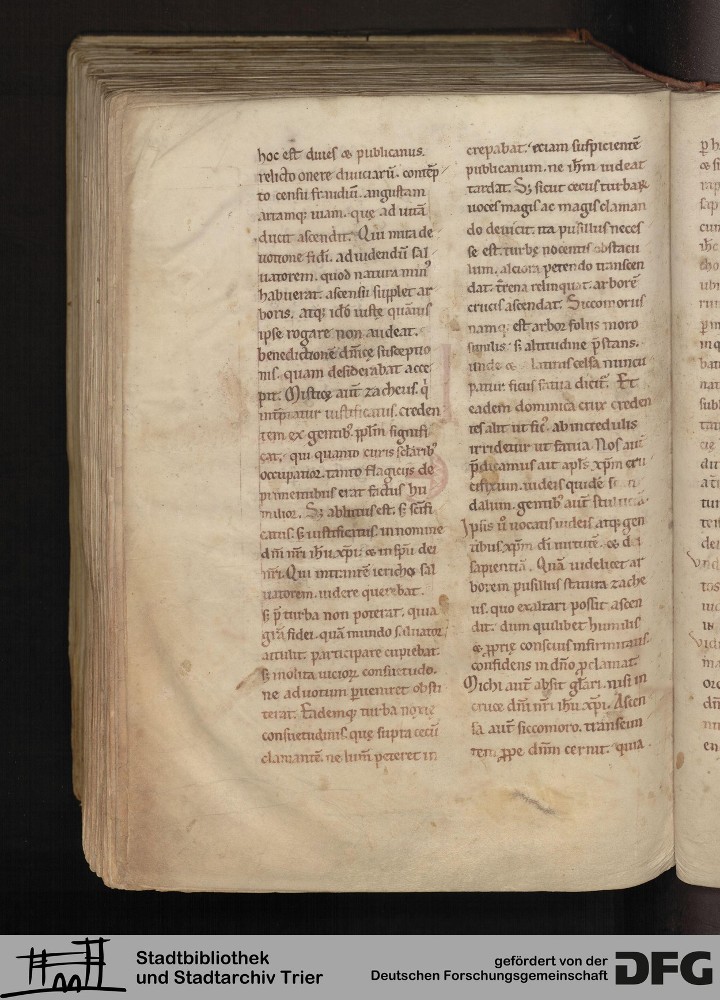 hoc est diues & publicanus.
relicto onere diuiciarū. contēp
to censu fraudiū. angustam
artamq; uiam. quę ad uitā
ducit ascendit. Qui mira de
uotione fidi. ad uidendū sal
uatorem. quod natura min᷒
habuerat. ascensu supplet ar
boris. atq; idō iuste quāuis
ipse rogare non audeat.
benedictionē dn̄icę susceptio
nis. quam desiderabat acce
pit. Mistice aut̄ zacheus. q̇
int̄p̄tatur iustificatus. creden
tem ex gentib᷒ pp̄lm signifi
cat. qui quanto curis sc̄larib᷒
occupatior. tanto flagiciis de
primentibus erat factus hu
milior. Sꝫ ablutus est. ꝫ sc̄ifi
catus. ꝫ iustificatus. in nomine
dn̄i nr̄i ih̄u xp̄i. & in sp̄u dei
nr̄i. Qui intrantē iericho sal
uatorem. uidere querebat.
ꝫ p̄ turba non poterat. quia
grām fidei. quā mundo saluator
attulit. participare cupiebat.
ꝫ inolita uicioꝝ consuetudo.
ne ad uotum ꝑueniret obsti
terat. Eademq; turba noxię
consuetudinis. quę supra cecū
clamantē. ne lum̄ peteret in
crepabat. etiam suspicientē
publicanum. ne ih̄m uideat
tardat. Sꝫ sicut cecus turbaꝝ
uoces magis ac magis claman
do deuicit. ita pusillus neces
se est. turbę nocentis obstacu
lum. alciora petendo transcen
dat. t̄rena relinquat. arborē
crucis ascendat. Siccomorus
namq; est arbor foliis moro
similis. ꝫ altitudine p̄stans.
unde & latinis celsa nuncu
patur. ficus fatua dicit᷒. Et
eadem dominica crux creden
tes alit ut fic᷒. ab incredulis
irridetur ut fatua. Nos aut̄
p̄dicamus ait apl̄s. xp̄m cru
cifixum. iudeis quidē scan
dalum. gentib᷒ aut̄ stulticiā.
Ipsis u᷒ uocatis iudeis atq; gen
tibus. xp̄m dī uirtutē. & dī
sapientiā. Quā uidelicet ar
borem pusillus statura zache
us. quo exaltari possit ascen
dit. dum quilibet humilis
& ꝓprię conscius infirmitatis
confidens in dn̄o ꝓclamat.
Michi aut̄ absit gl̄ari. nisi in
cruce dn̄i nr̄i ih̄u xp̄i. Ascen
sa aut̄ siccomoro. transeun
tem ꝓpe dn̄m cernit. quia
Stadtbibliothek
und Stadtarchiv Trier
gefördert von der
Deutschen Forschungsgemeinschaft
DFG